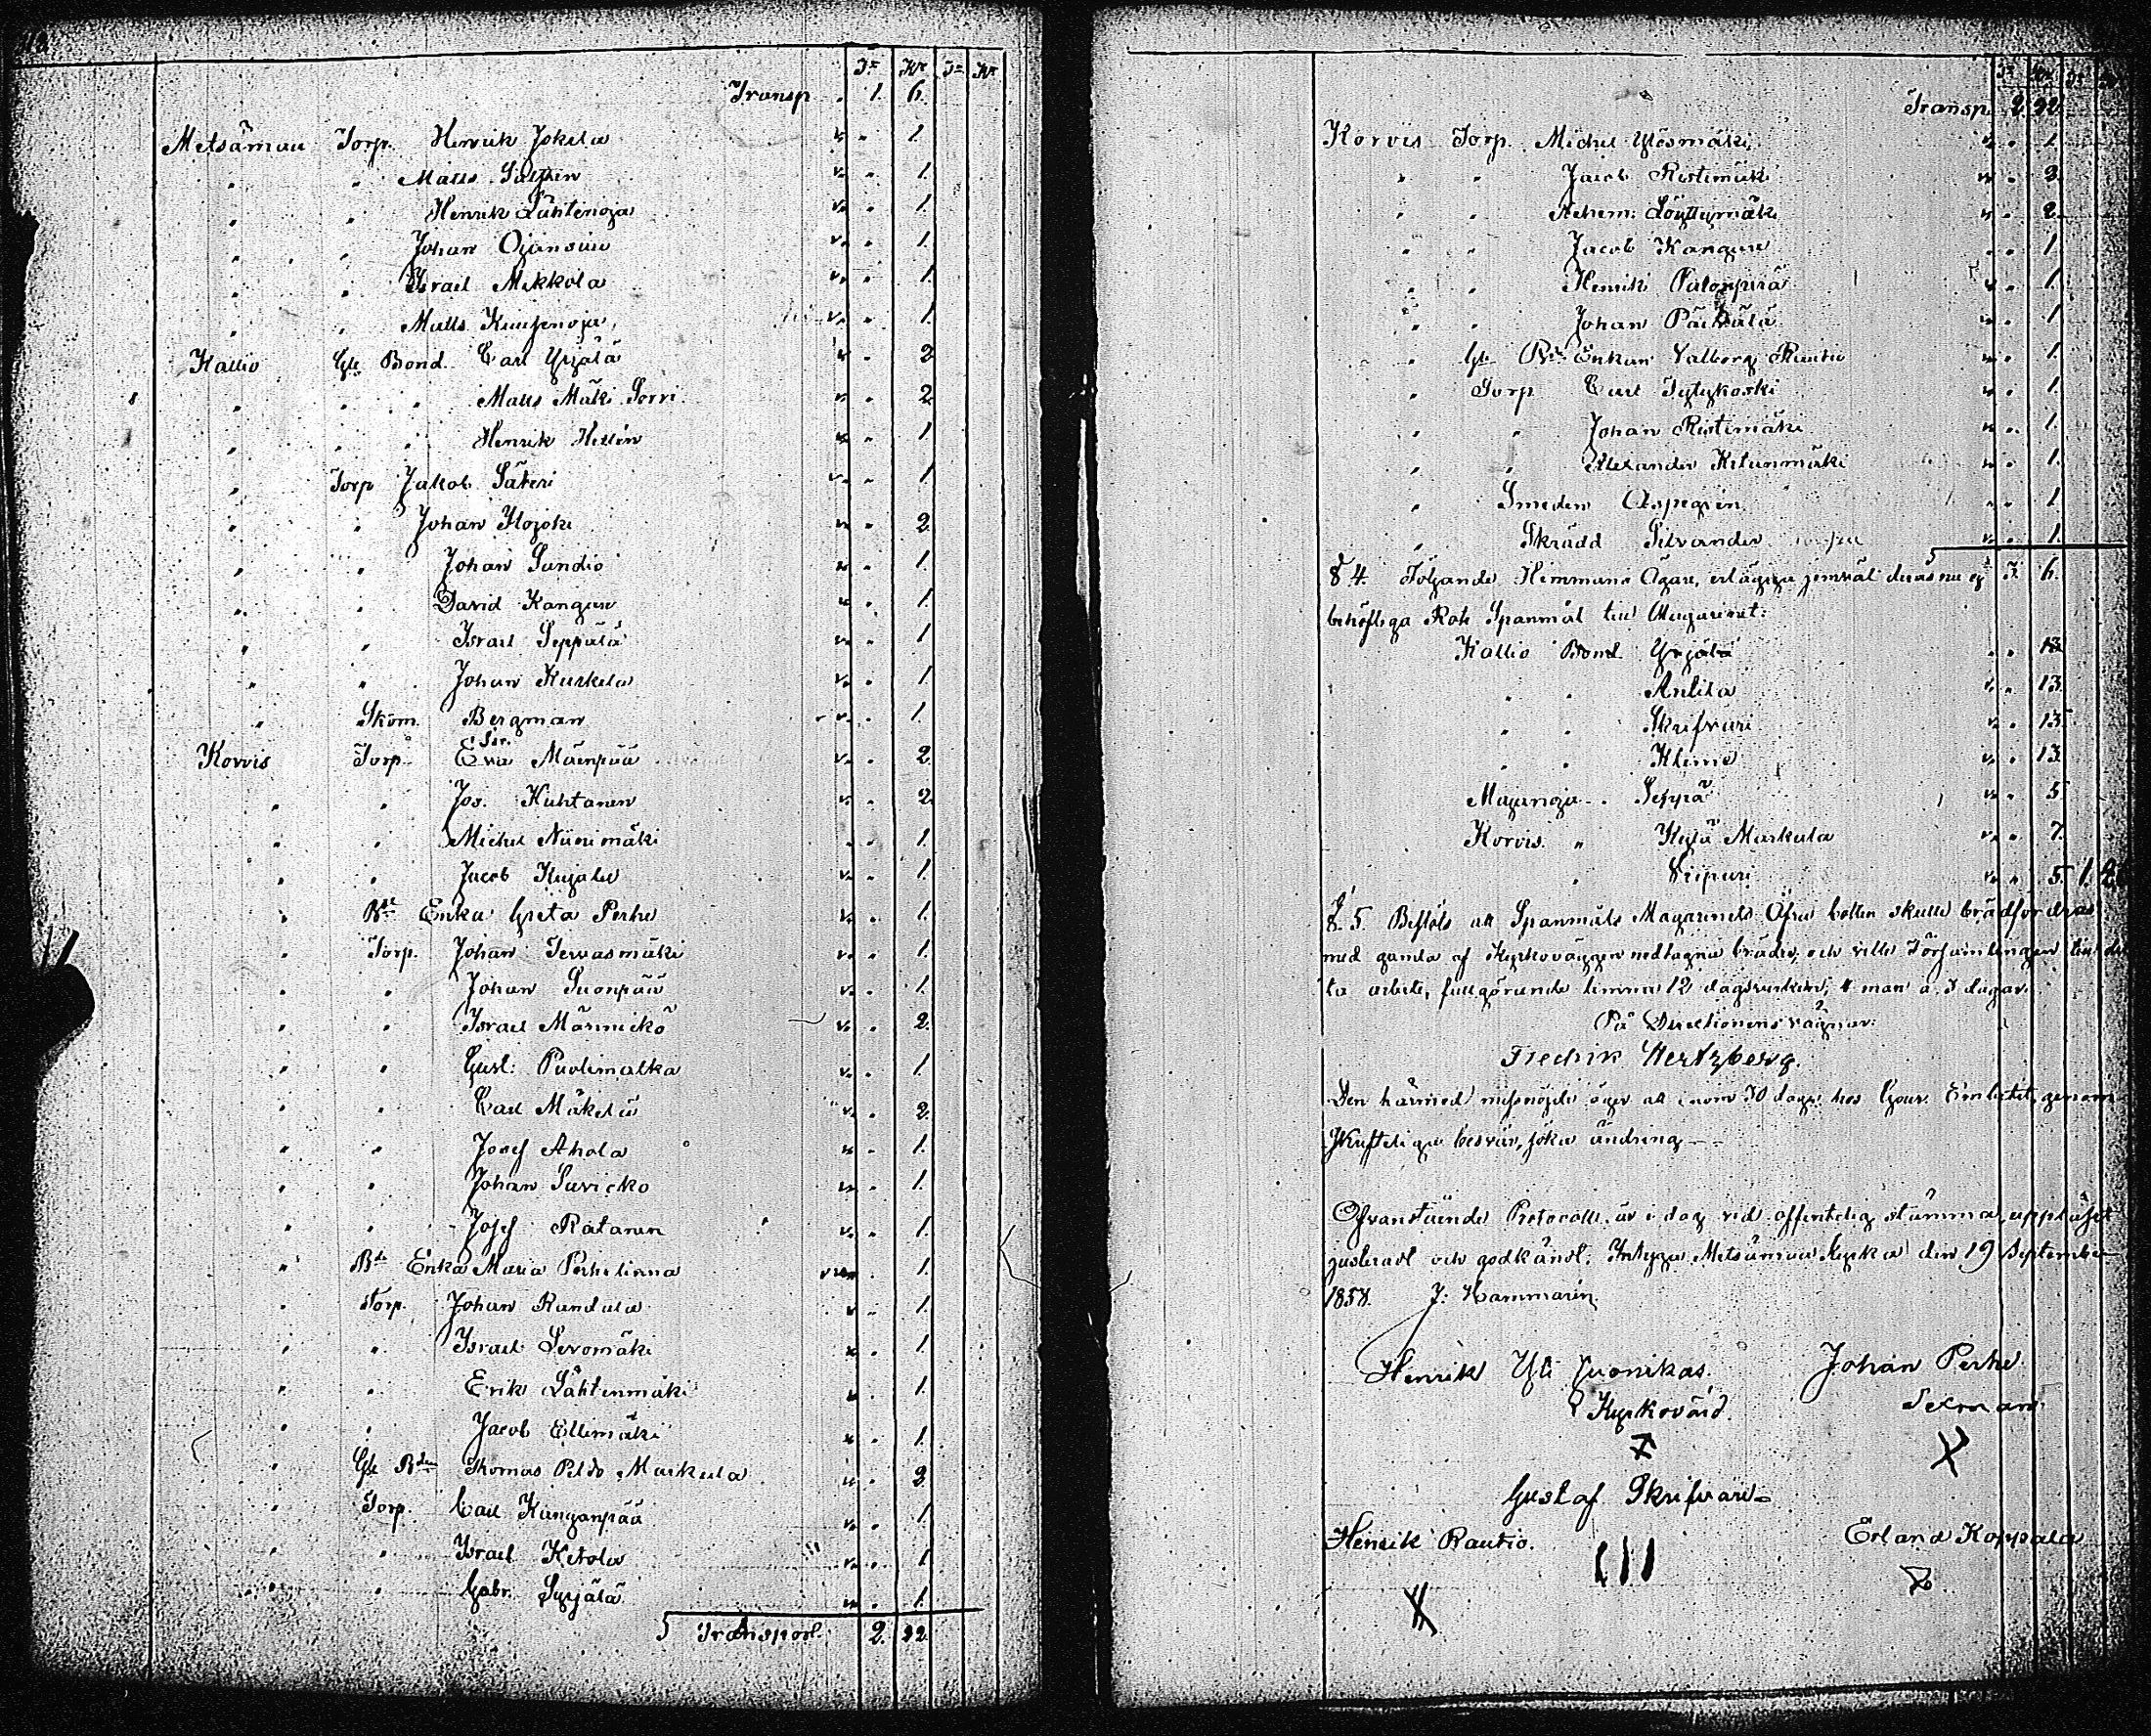 Tr Kr Tr Kr
Transp . 1. 6.
Metsämaa Torp. Henrik Jokela " " 1.
" " Matts " " 1.
" " Henrik Lähtenoja " " 1.
" " Johan Ojansuu " " 1.
" " Israel Mikkola " " 1.
" " Matts " " 1.
Kallio Gle Bond. Carl Yrjälä " " 2
" " " Matts Mäki Sorri " " 2
" " " Henrik Hellén " " 1
" Torp Jakob Säteri " " 1
" " Johan Ilojoki " " 2.
" " Johan Sundio " " 1.
" " David Kangas " " 1.
" " Israel Seppälä " " 1
" " Johan Kurkela " " 1
" Skom. Bergman " " 1.
Korvis Torp. Eva Mäenpää " " 2.
" " Jos. Huhtanen " " 2
" " Michel Niinimäki " " 1.
" " Jacob Kujala " " 1.
" Bde Enka Greta Perho " " 1.
" Torp. Johan Tervasmäki " " 1.
" " Johan Suonpää " " 1.
" " Israel Männickö " " 2.
" " Gust: Puolimatka " " 1
" " Carl Mäkelä " " 2.
" " Josef Ahola " " 1.
" " Johan Suvicko " " 1.
" " Josef Ratanen " " 1.
" Bde Enka Maria Perhelinna " " 1.
" Torp. Johan Randala " " 1.
" " Israel Levomäki " " 1
" " Erik Lähtenmäki " " 1.
" " Jacob Ellimäki " " 1.
" Gle Bden Thomas Peldo Markula " " 2
" Torp. Carl Kanganpää " " 1
" " Israel Ketola " " 1
" " Gabr. Syrjälä " " 1.
Transport. 2. 22.
Tr Kr Tr Kr
Transp. 2. 22.
Korvis Torp. Michel Ylösmäki " " 1
" " Jacob Ristimäki " " 2.
" " Achim: Löyttymäki " " 2.
" " Jacob Kangas " " 1
" " Henrik Palonperä " " 1.
" " Johan Päivälä " " 1
" Gle Bde Enkan Valborg Rautio " " 1.
" Torp Carl Tytykoski " " 1.
" " Johan Ristimäki " " 1.
" " Alexander Ketunmäki " " 1.
" Smeden Aspegrén " " 1
" Skrädd Silvander " " 1.
§ 4. Följande Hemmans Ägare, erlägga jemväl deras nu ej 3. 6.
behöfliga Rote Spanmål till Magasinet:
Kallio Bond Yrjälä " " 13
" " Anlila " " 13.
" " Skrifvari " " 13
" " Klemo " " 13.
Majanoja " Seppä " " 5
Korvis. " Kylä Markula " " 7.
" Vripuri " " 5. 1.
§ 5. Beslöts att Spanmåls Magasinets Öfra botten skulle brädfordras
med gamla af Kyrkoväggen nedtagna bräder, och ville Församlingen till det
ta arbete, fullgörande lemna 12 dagsverken, 4 man à 3 dagar.
På Directionens vägnar:
Fredrik Hertzberg.
Den härmed missnöjde äger att inom 30 dagar hos Gouv. Embetet, genom
skrifteliga besvär, söka ändring —
Ofvanstående Protocoll är i dag vid offentelig stämma uppläst
justeradt och godkändt. Intyga Metsämaa Kyrka den 19 September
1858. J. Hammarén.
Henrik Yli Juonikas. Johan Perho.
Kyrkovärd. Sexman.
Gustaf Skrifvari
Henrik Rautio. Erland Koppala